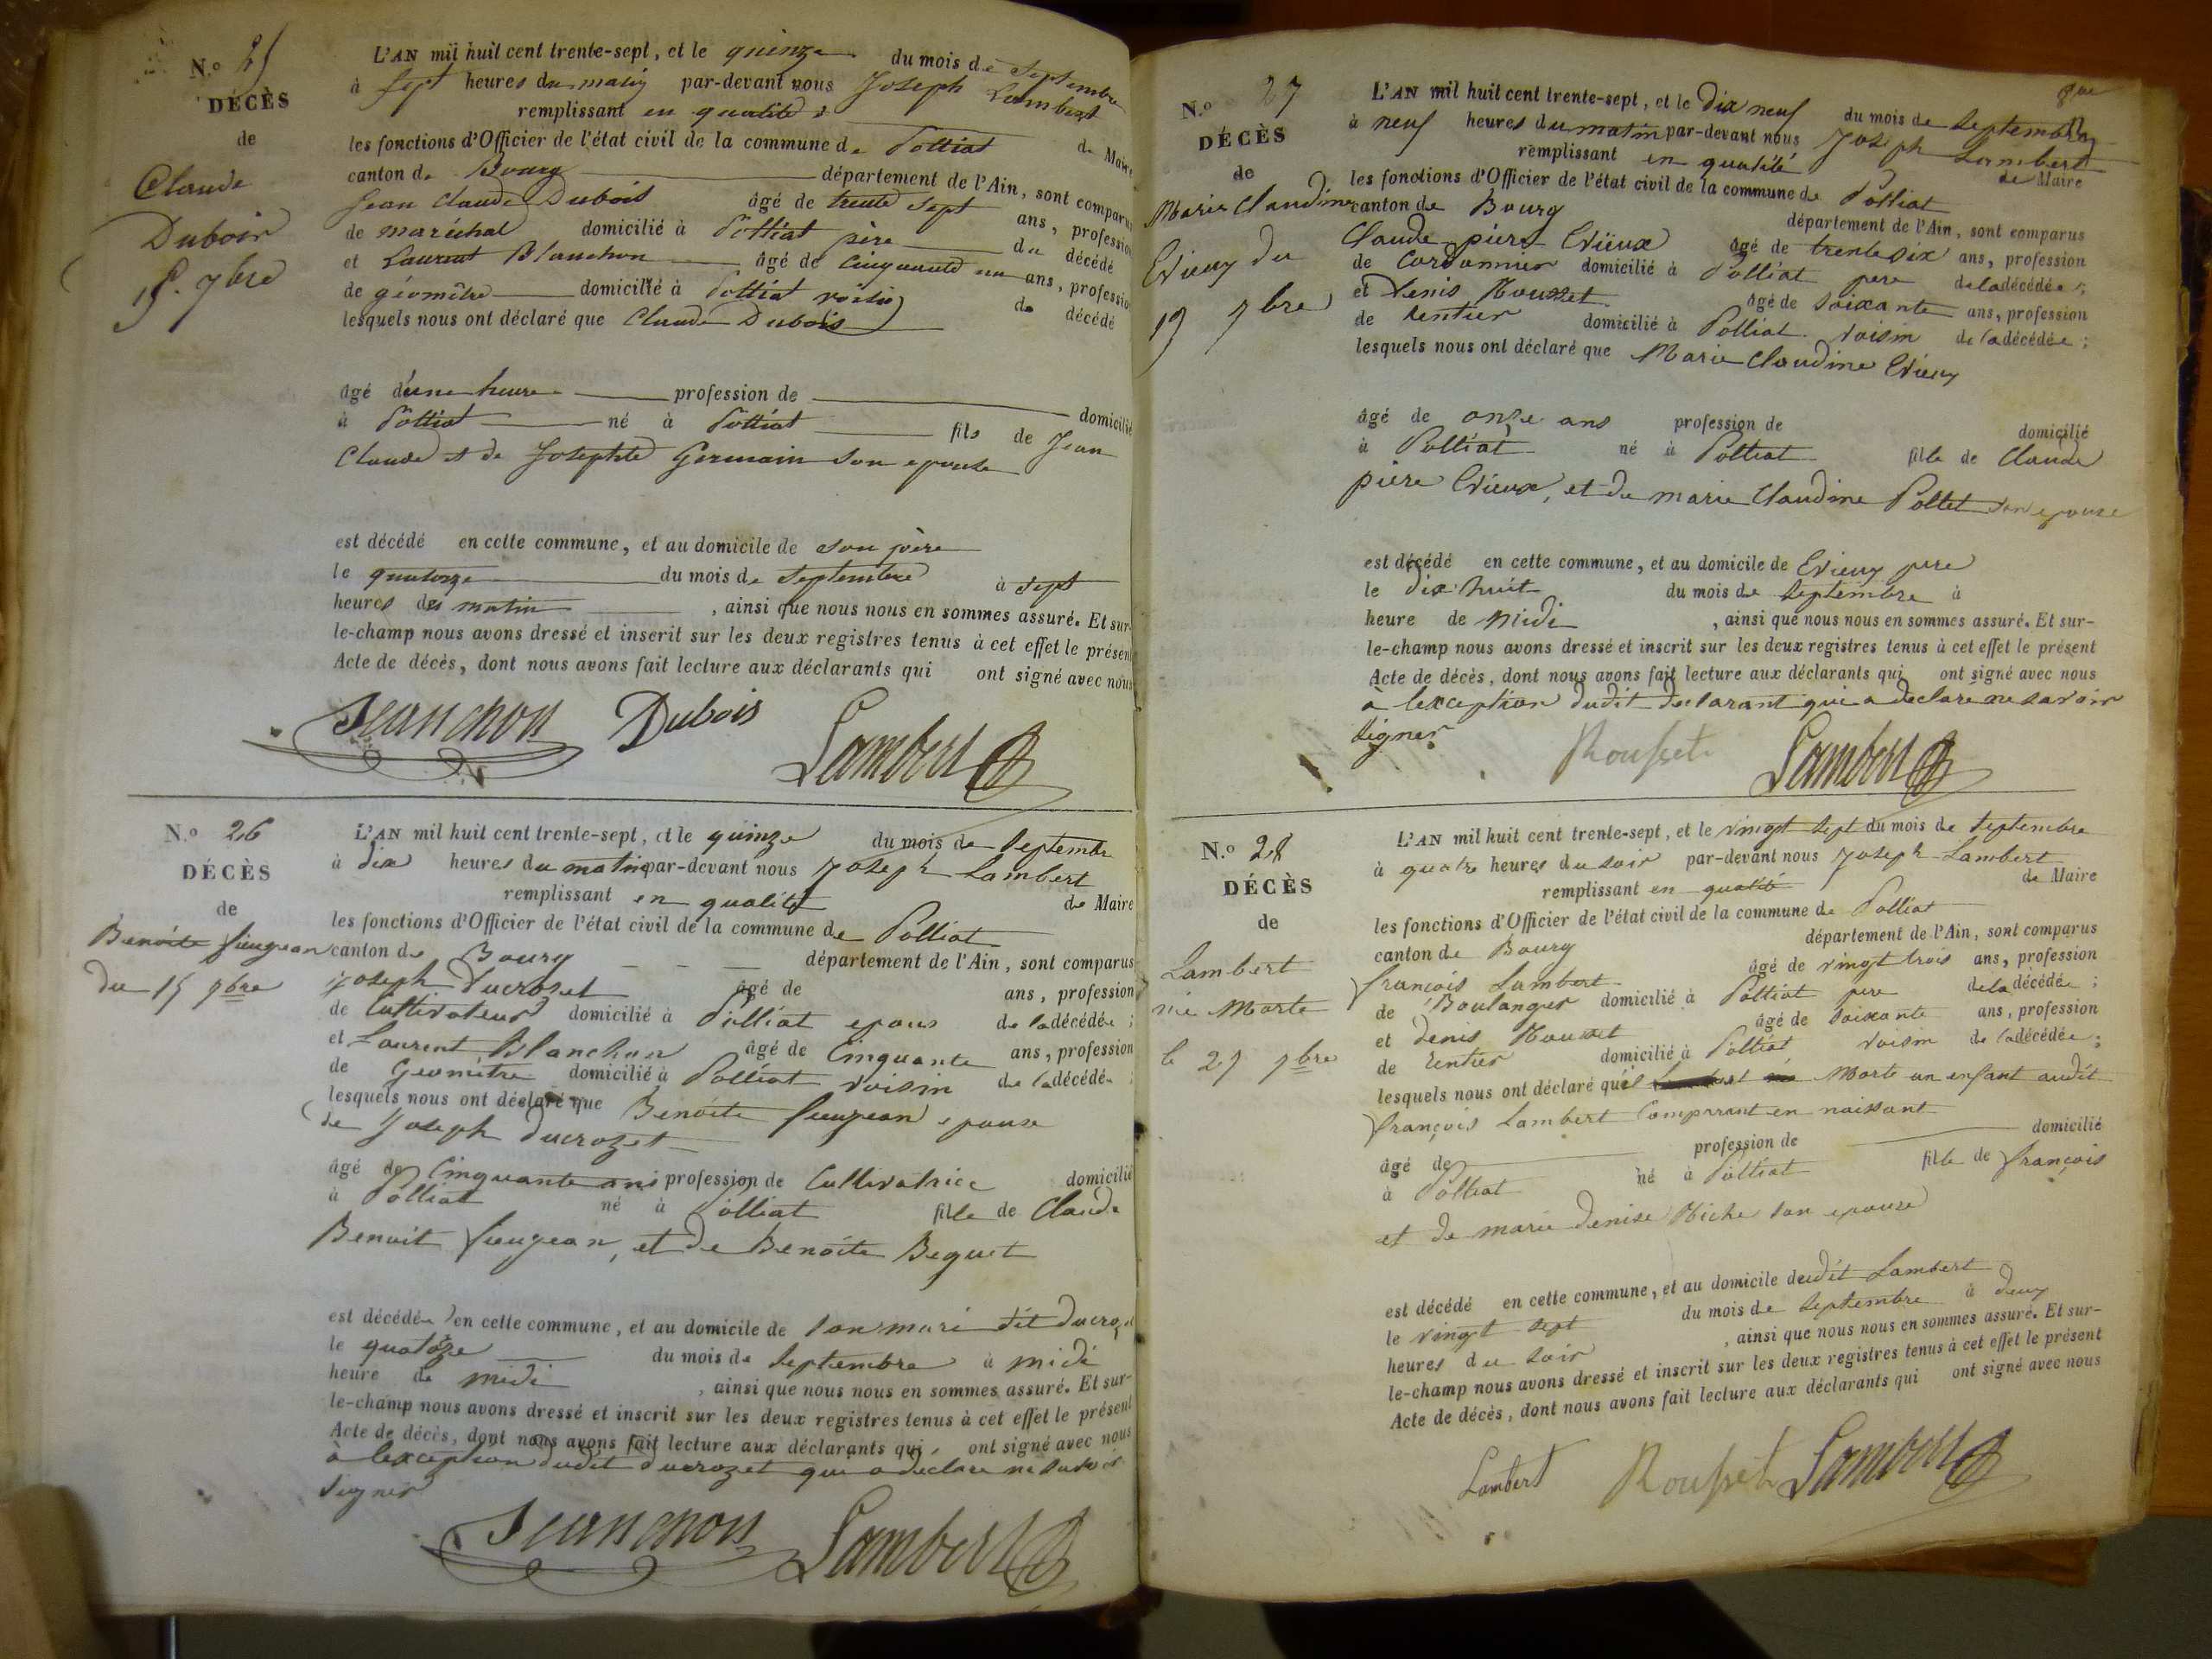 N.o 25
DÉCÈS
de
Claude
Dubois
15. 7bre
L'AN mil huit cent trente-sept, et le quinze du mois de septembre
à sept heures du matin par-devant nous Joseph Lambert
remplissant en qualité de Maire
les fonctions d'Officier de l'état civil de la commune de Polliat
canton de Bourg département de l'Ain, sont comparus
Jean Claude Dubois âgé de trente sept ans, profession
de maréchal domicilié à Polliat père du décédé
et Laurent Blanchon âgé de cinquante un ans, profession
de géomètre domicilié à Polliat voisin du décédé
lesquels nous ont déclaré que Claude Dubois
âgé d'une heure profession de domicilié
à Polliat né à Polliat fils de Jean
Claude et de Josephte Germain son epouse
est décédé en cette commune, et au domicile de son père
le quatorze du mois de septembre à sept
heures du matin, ainsi que nous nous en sommes assuré. Et sur-
le-champ nous avons dressé et inscrit sur les deux registres tenus à cet effet le présent
Acte de décès, dont nous avons fait lecture aux déclarants qui ont signé avec nous
Dubois Lambert
N.o 26
DÉCÈS
de
Benoite
du 15 7bre
L'AN mil huit cent trente-sept, et le quinze du mois de septembre
à dix heures du matin par-devant nous Joseph Lambert
remplissant en qualité de Maire
les fonctions d'Officier de l'état civil de la commune de Polliat
canton de Bourg département de l'Ain, sont comparus
Joseph Ducrozet âgé de ans, profession
de Cultivateur domicilié à Polliat epoux de la décédée;
et Laurent Blanchon âgé de Cinquante ans, profession
de Geomètre domicilié à Polliat voisin de la décédée;
lesquels nous ont déclaré que Benoite epouse
de Joseph ducrozet
âgé de Cinquante ans profession de Cultivatrice domicilié
à Polliat né à Polliat fille de Claude
Benoit et de Benoite Beguet
est décédée en cette commune, et au domicile de son mari dit Ducrozet
le quatorze du mois de septembre à midi
heure de midi, ainsi que nous nous en sommes assuré. Et sur-
le-champ nous avons dressé et inscrit sur les deux registres tenus à cet effet le présent
Acte de décès, dont nous avons fait lecture aux déclarants qui ont signé avec nous
à lexception dudit ducrozet qui a declare ne savoir
signer
Lambert
N.o 27
DÉCÈS
de
Marie Claudine
Evieux du
19 7bre
L'AN mil huit cent trente-sept, et le dix neuf du mois de septembre
à neuf heures du matin par-devant nous Joseph Lambert
remplissant en qualité de Maire
les fonctions d'Officier de l'état civil de la commune de Polliat
canton de Bourg département de l'Ain, sont comparus
Claude piere Evieux âgé de trente six ans, profession
de Cordonnier domicilié à Polliat pere de la décédée;
et Denis Rousset âgé de soixante ans, profession
de rentier domicilié à Polliat voisin de la décédée;
lesquels nous ont déclaré que Marie Claudine Evieux
âgé de onze ans profession de domicilié
à Polliat né à Polliat fille de Claude
piere Evieux, et de marie Claudine Pollet son epouse
est décédé en cette commune, et au domicile de Evieux pere
le dix huit du mois de septembre à
heure de midi, ainsi que nous nous en sommes assuré. Et sur-
le-champ nous avons dressé et inscrit sur les deux registres tenus à cet effet le présent
Acte de décès, dont nous avons fait lecture aux déclarants qui ont signé avec nous
à lexception dudit declarant qui a declaré ne savoir
signer.
Rousset Lambert
N.o 28
DÉCÈS
de
Lambert
né Morte
le 27 7bre
L'AN mil huit cent trente-sept, et le vingt sept du mois de septembre
à quatre heures du soir par-devant nous Joseph Lambert
remplissant en qualité de Maire
les fonctions d'Officier de l'état civil de la commune de Polliat
canton de Bourg département de l'Ain, sont comparus
françois Lambert âgé de vingt trois ans, profession
de Boulanger domicilié à Polliat pere de la décédée;
et denis Rousset âgé de soixante ans, profession
de rentier domicilié à Polliat voisin de la décédée;
lesquels nous ont déclaré qu'est Morte un enfant audit
françois Lambert Comparant en naissant
âgé de profession de domicilié
à Polliat né à Polliat fille de françois
et de marie denise Miche son epouse
est décédé en cette commune, et au domicile dudit Lambert
le vingt sept du mois de septembre à deux
heures du soir, ainsi que nous nous en sommes assuré. Et sur-
le-champ nous avons dressé et inscrit sur les deux registres tenus à cet effet le présent
Acte de décès, dont nous avons fait lecture aux déclarants qui ont signé avec nous
Lambert Rousset Lambert